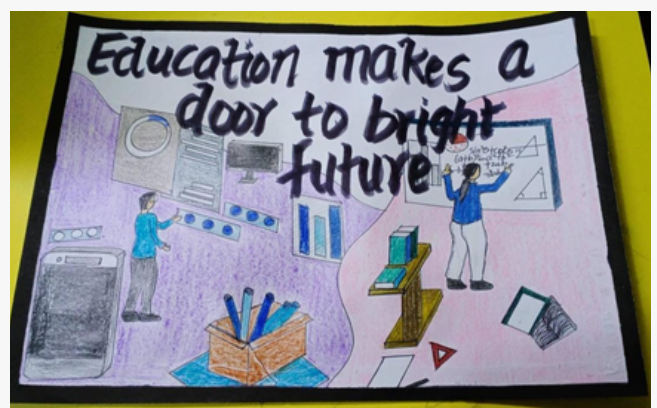 Education makes a
door to bright
future